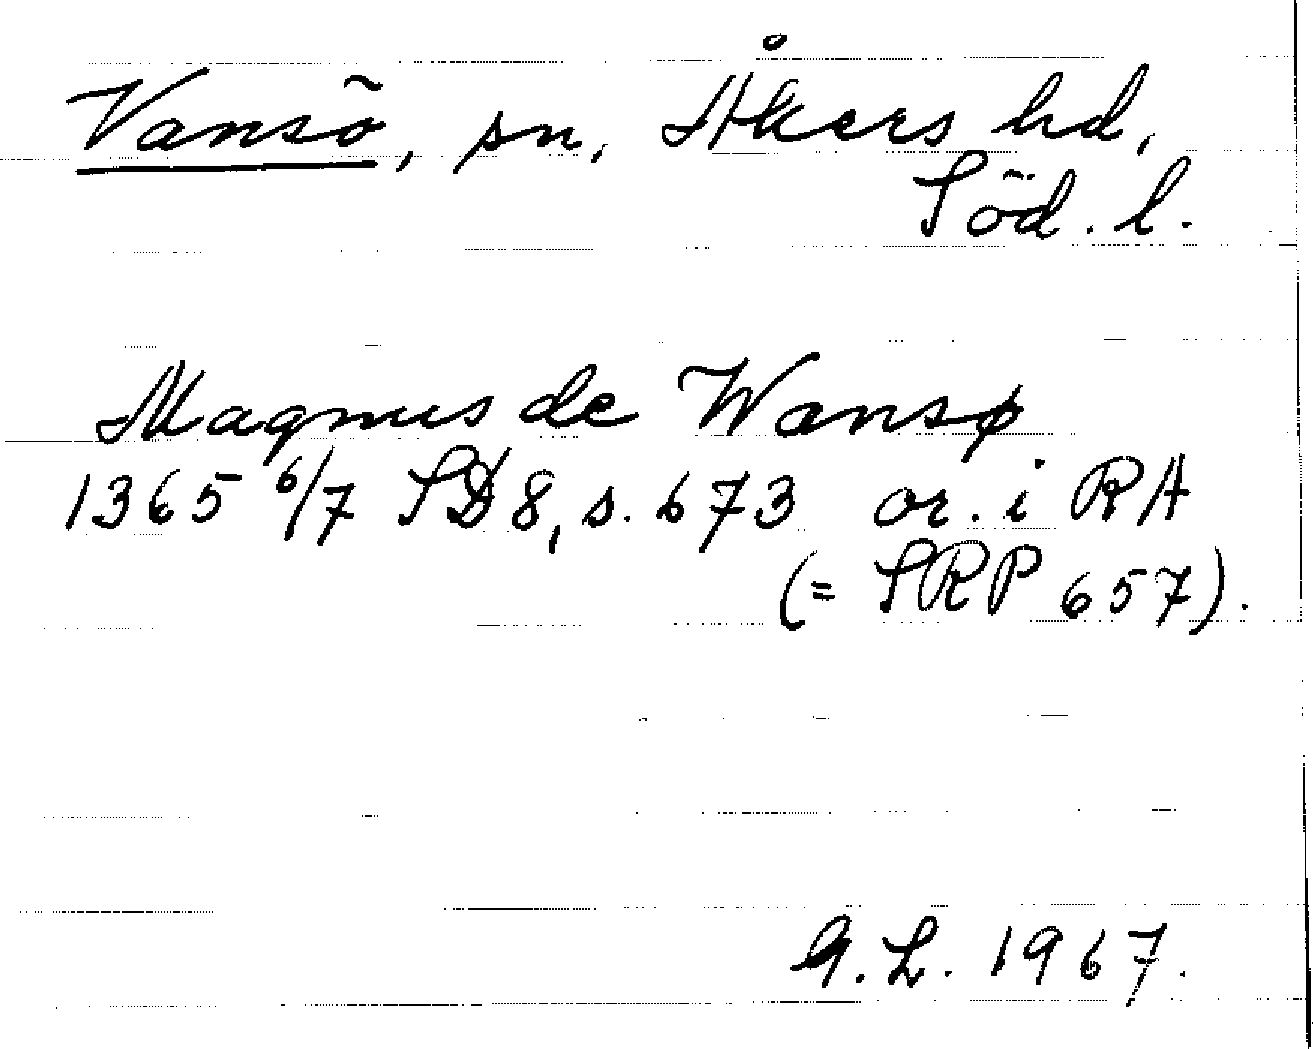 Vansö, sn, Åkers hd,
Söd. l.
Magnus de Wansø
1365 6/7 SD 8, s. 673 or. i RA
(= SRP 657).
G. L. 1967.